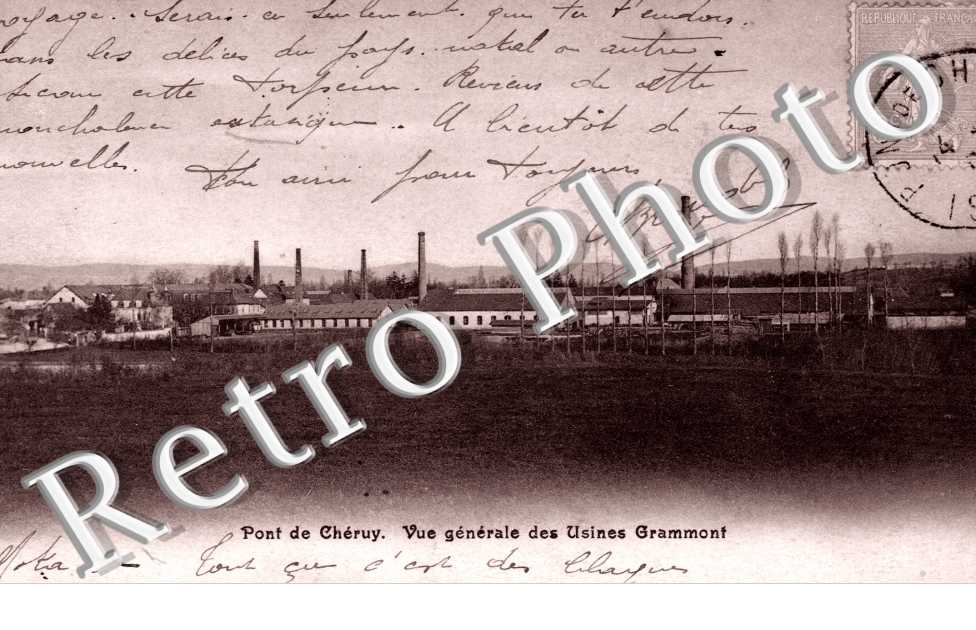 voyage. Serais-ce seulement que tu t'endors
dans les délices du pays natal ou autre.
Secoue cette torpeur. Reviens de cette
nonchalance extatique. A bientôt de tes
nouvelles.
Ton ami pour toujours
RÉPUBLIQUE FRANÇAISE
Retro Photo
Pont de Chéruy. Vue générale des Usines Grammont
Tout ça c'est des blagues